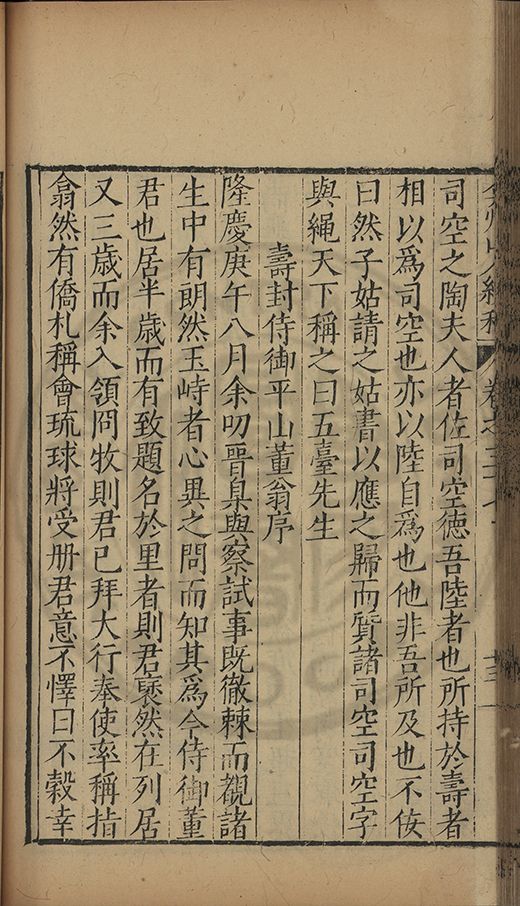 司空之陶夫人者佐司空德吾陸者也所持於壽者
相以爲司空也亦以陸自爲也他非吾所及也不佞
曰然子姑請之姑書以應之歸而質諸司空司空字
與繩天下稱之曰五臺先生
壽封侍御平山董翁序
隆慶庚午八月余叨晉臬與察試事旣徹棘而觀諸
生中有朗然玉峙者心異之問而知其爲今侍御董
君也居半歲而有致題名於里者則君裒然在列居
又三歲而余入領冏牧則君已拜大行奉使率稱指
翕然有僑札稱會琉球將受册君意不懌曰不穀幸